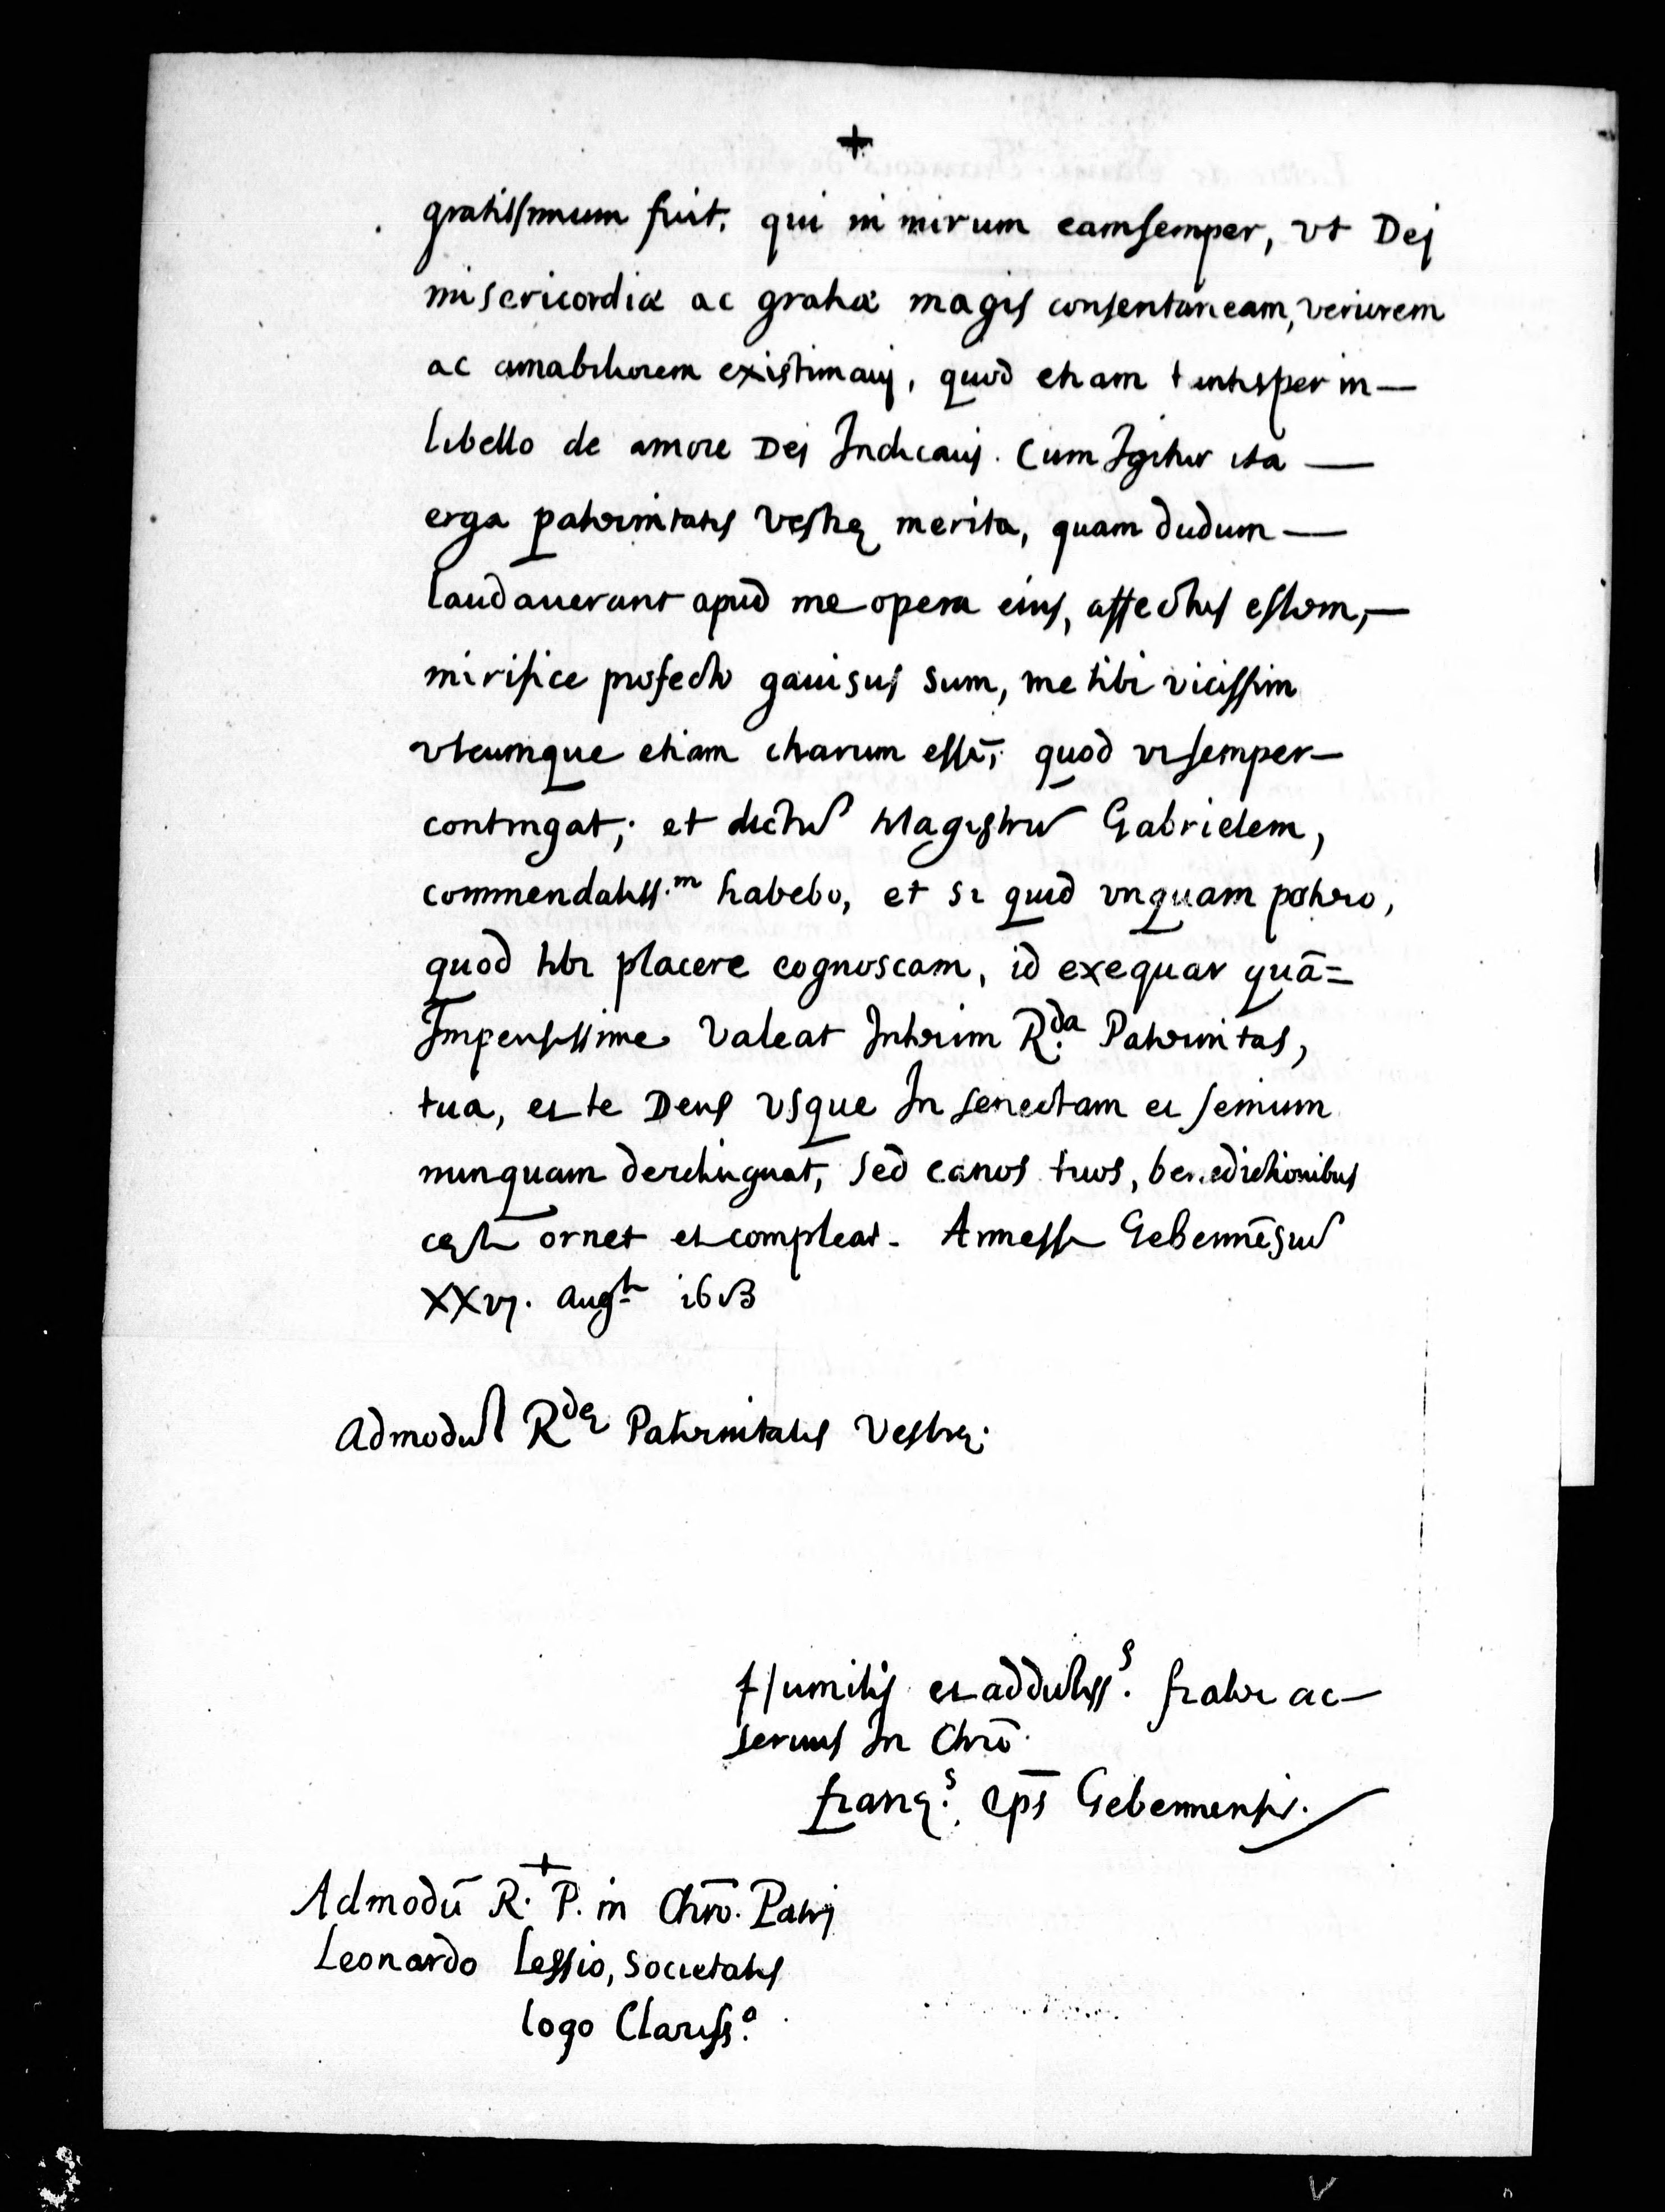 +
gratissimum fuit, qui ni mirum eam semper, vt Dej
misericordiæ ac gratiæ magis consentaneam, veriorem
ac amabiliorem existimauj, quod etiam tantisper in—
libello de amore Dej Indicauj. Cum Igitur ita —
erga paternitatis Vestrę merita, quam dudum—
laudauerant apud me opera eius, affectus essem,—
mirifice profecto gauisus sum, me tibi vicissim
vtcumque etiam charum esse; quod vt semper—
contingat; et dictum Magistrum Gabrielem,
commendatiss.m habebo, et si quid vnquam potero,
quod tibi placere cognoscam, id exequar quā=
Impensissime Valeat Interim R.da Paternitas,
tua, et te Deus vsque In senectam et senium
nunquam derelinquat, sed canos tuos, benedictionibus
cęli ornet et compleat. Annessi Gebennēsium
XXVj. Augti 1613
Admodum Rdę Paternitatis Vestrę.
Humilis et addictiss.s frater ac—
seruus In Chrō.
franc.s, ep̄s Gebennensis.
+
Admodū R. P. in Chrō. Patrj
Leonardo Lessio, Societatis
logo Clariss.o